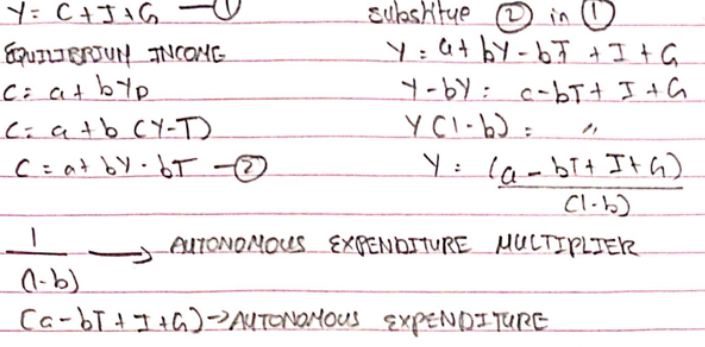 Y = C + I + G — ①
EQUILIBRIUM INCOME
C = a + b YD
C = a + b (Y-T)
C = a + bY - bT — ②
substitue ② in ①
Y = a + bY - bT + I + G
Y - bY = a - bT + I + G
Y (1-b) = "
Y = (a - bT + I + G)
(1-b)
1
(1-b)
→ AUTONOMOUS EXPENDITURE MULTIPLIER
(a - bT + I + G) → AUTONOMOUS EXPENDITURE